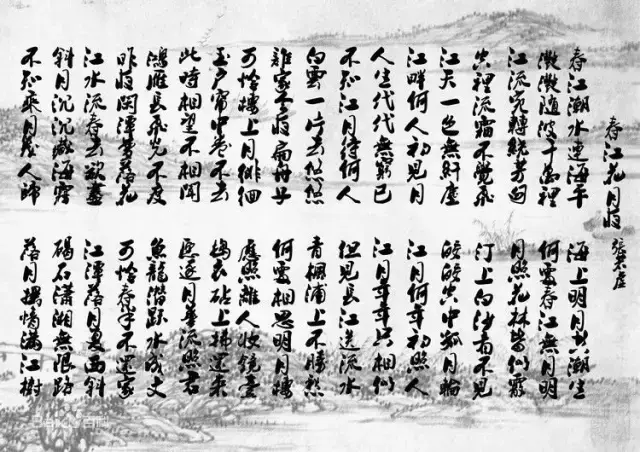 春江花月夜 張若虛
春江潮水連海平
海上明月共潮生
灩灩隨波千萬裡
何處春江無月明
江流宛轉繞芳甸
月照花林皆似霰
空裡流霜不覺飛
汀上白沙看不見
江天一色無纖塵
皎皎空中孤月輪
江畔何人初見月
江月何年初照人
人生代代無窮已
江月年年只相似
不知江月待何人
但見長江送流水
白雲一片去悠悠
青楓浦上不勝愁
誰家今夜扁舟子
何處相思明月樓
可憐樓上月徘徊
應照離人妝鏡臺
玉戶簾中卷不去
搗衣砧上拂還來
此時相望不相聞
願逐月華流照君
鴻雁長飛光不度
魚龍潛躍水成文
昨夜閑潭夢落花
可憐春半不還家
江水流春去欲盡
江潭落月復西斜
斜月沉沉藏海霧
碣石瀟湘無限路
不知乘月幾人歸
落月搖情滿江樹
Baidu百科